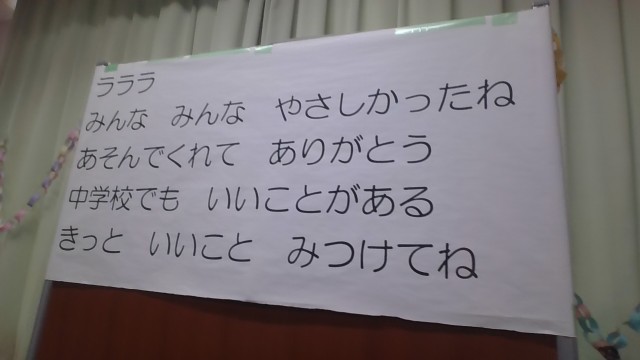 ラララ
みんな　みんな　やさしかったね
あそんでくれて　ありがとう
中学校でも　いいことがある
きっと　いいこと　みつけてね